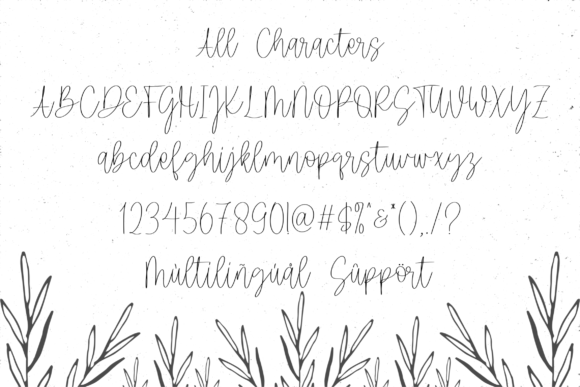 All Characters
ABCDEFGHIJKLMNOPQRSTUVWXYZ
abcdefghijklmnopqrstuvwxyz
1234567890!@#$%^&*(),./?
Múltilíñgúål Sûppört